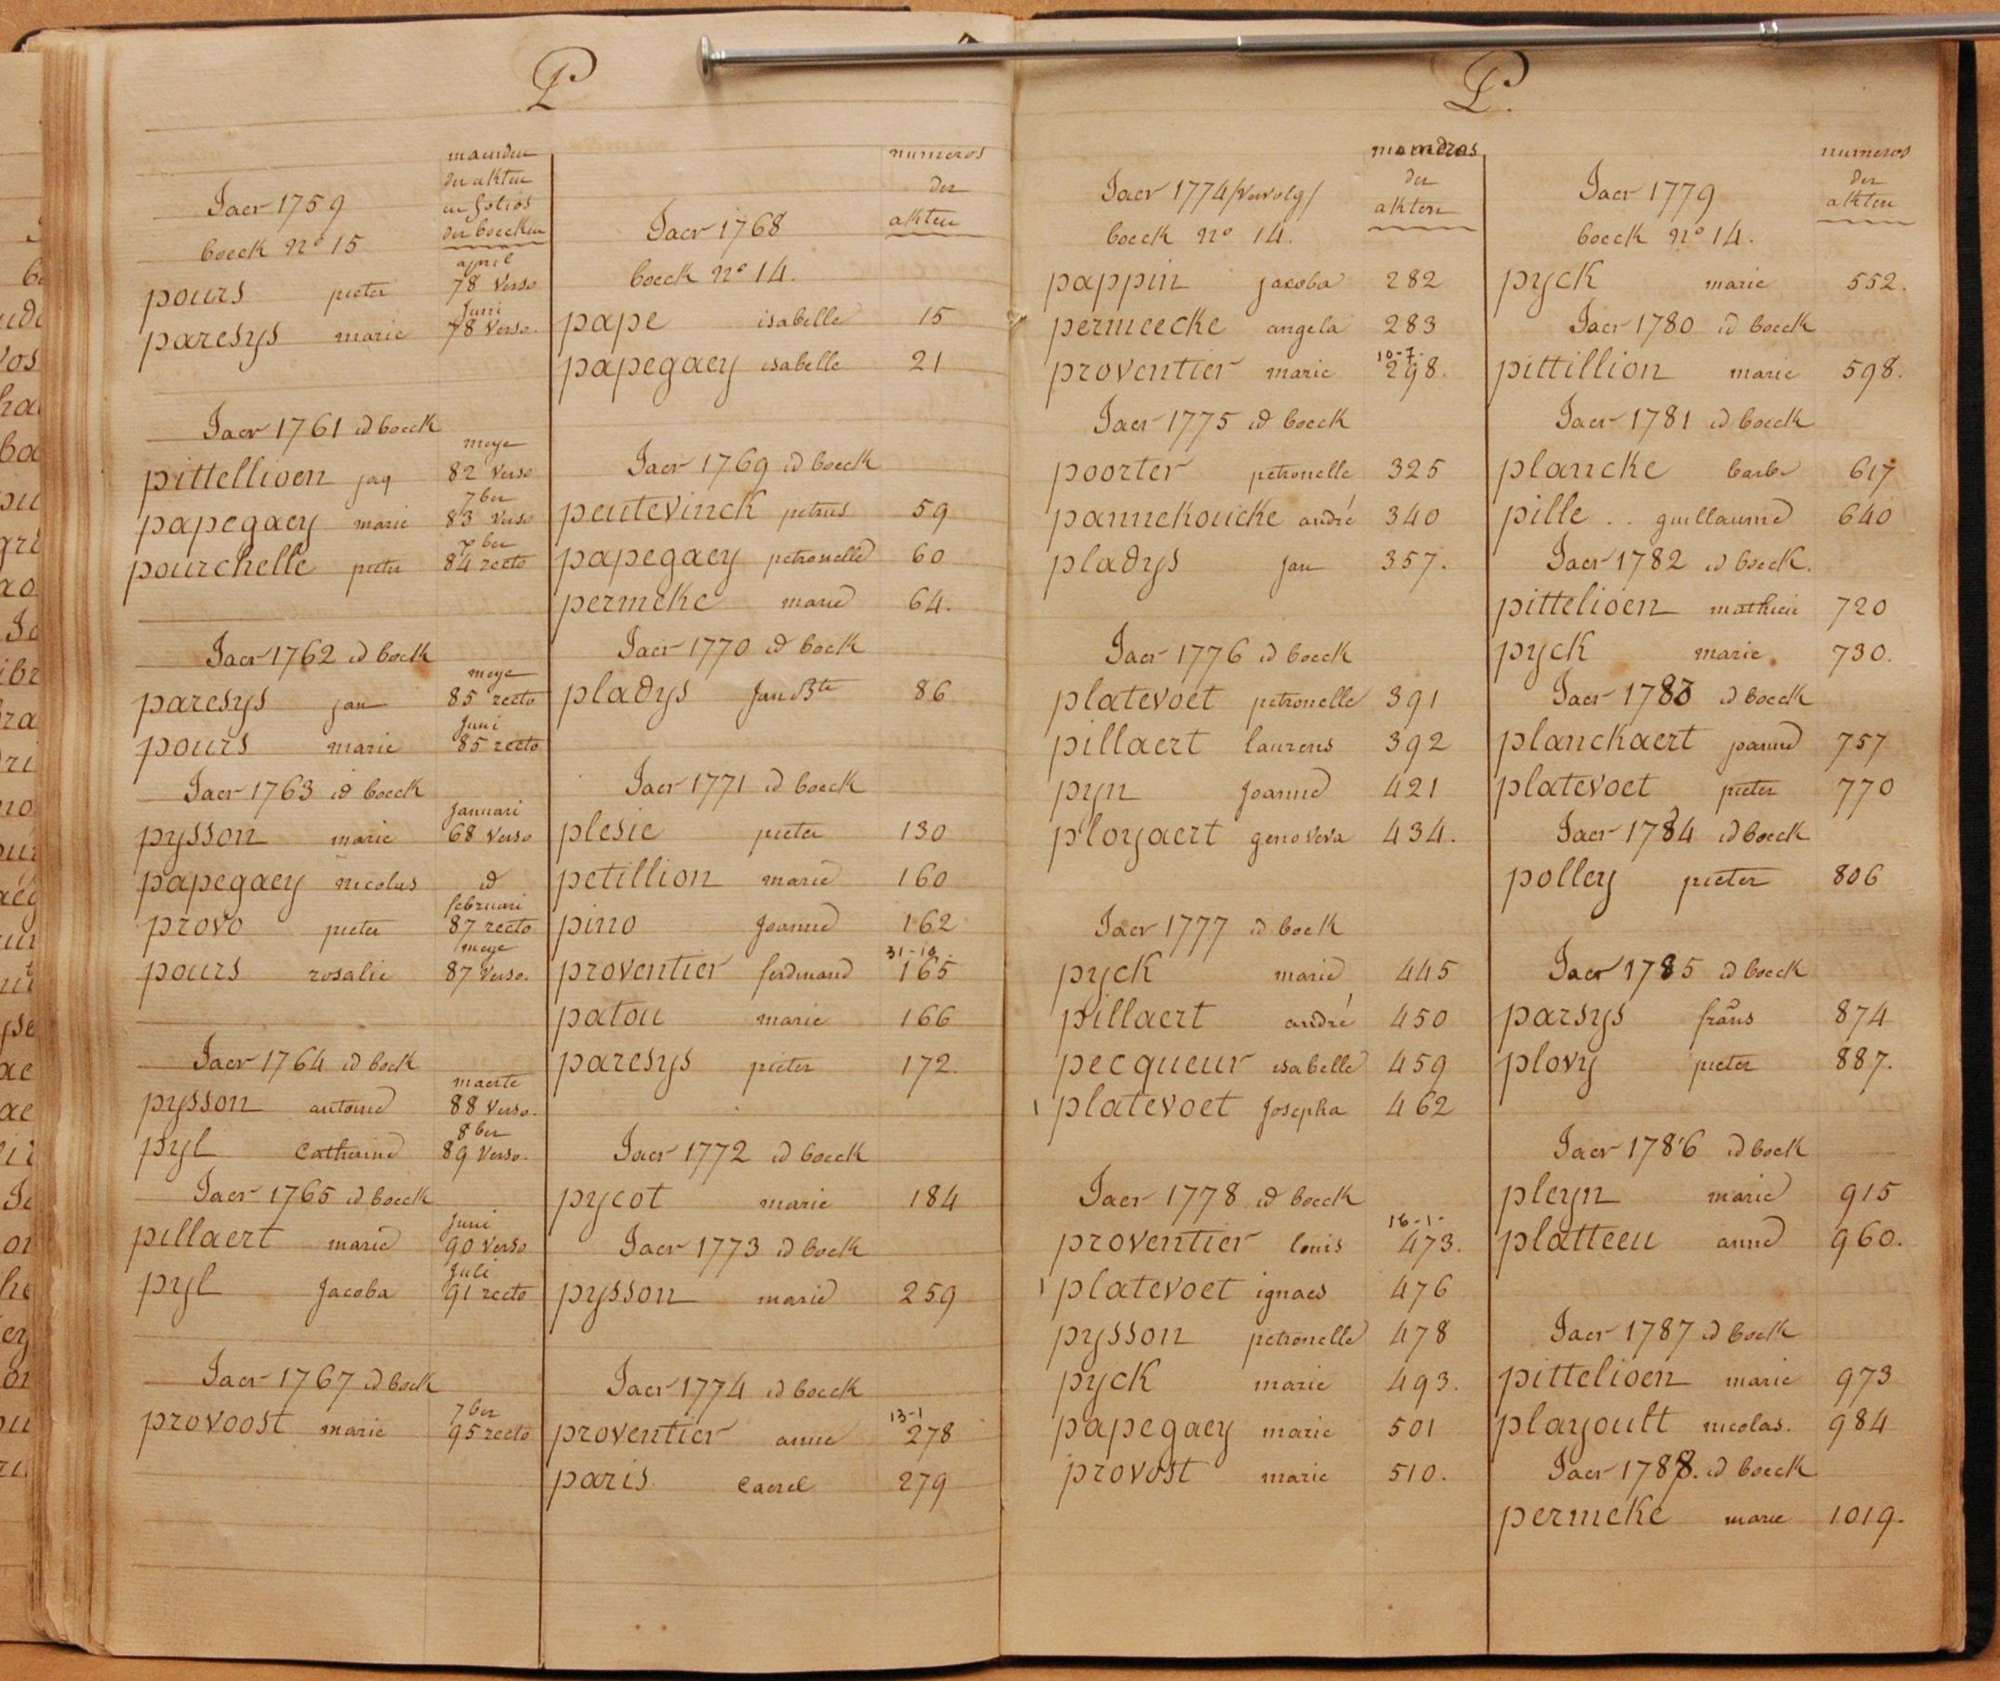 P
maenden
der akten
en folios
der boecken
Jaer 1759
boeck nº 15
april
pours pieter 78 verso
Juni
paresys marie 78 verso.
Jaer 1761 id boeck
meye
pittellioen jaq 82 verso
7ber
papegaey marie 83 verso
7ber
pourchelle pieter 84 recto
Jaer 1762 id boeck
meye
paresys jan 85 recto
Juni
pours marie 85 recto
Jaer 1763 id boeck
Januari
pysson marie 68 verso
papegaey nicolas id
februari
provo pieter 87 recto
meye
pours rosalie 87 verso.
Jaer 1764 id boek
maerte
pysson antoine 88 verso.
8ber
pyl Catherine 89 verso.
Jaer 1765 id boeck
Juni
pillaert marie 90 verso
Juli
pyl Jacoba 91 recto
Jaer 1767 id boek
7ber
provoost marie 95 recto
numeros
der
akten
Jaer 1768
boeck nº 14.
pape isabelle 15
papegaey isabelle 21
Jaer 1769 id boeck
peutevinck petrus 59
papegaey petronelle 60
permeke marie 64.
Jaer 1770 id boek
pladys Jan Bte 86
Jaer 1771 id boeck
plesie pieter 130
petillion marie 160
pino Joanne 162
31-10.
proventier ferdinand 165
patou marie 166
paresys pieter 172.
Jaer 1772 id boeck
pycot marie 184
Jaer 1773 id boek
pysson marie 259
Jaer 1774 id boeck
13-1
proventier anne 278
paris Carel 279
P.
numeros
der
akten
Jaer 1774 /vervolg/
boeck nº 14.
pappin jacoba 282
permeecke angela 283
10-7.
proventier marie 298.
Jaer 1775 id boeck
poorter petronelle 325
pannekoucke andré 340
pladys jan 357.
Jaer 1776 id boeck
platevoet petronelle 391
pillaert laurens 392
pyn Joanne 421
ployaert genoveva 434.
Jaer 1777 id boek
pyck marie 445
pillaert andré 450
pecqueur isabelle 459
platevoet Josepha 462
Jaer 1778 id boeck
16-1-
proventier louis 473.
platevoet ignaes 476
pysson petronelle 478
pyck marie 493.
papegaey marie 501
provost marie 510.
numeros
der
akten
Jaer 1779
boeck nº 14.
pyck marie 552.
Jaer 1780 id boeck
pittillion marie 598.
Jaer 1781 id boeck
plancke barbe 617
pille .. guillaume 640
Jaer 1782 id boeck.
pittelioen mathieu 720
pyck marie 730.
Jaer 1783 id boeck
planckaert joanne 757
platevoet pieter 770
Jaer 1784 id boeck
polley pieter 806
Jaer 1785 id boeck
parsys frans 874
plovy pieter 887.
Jaer 1786 id boek
pleyn marie 915
platteeu anne 960.
Jaer 1787 id boek
pittelioen marie 973
playoult nicolas. 984
Jaer 1788. id boeck
permeke marie 1019.